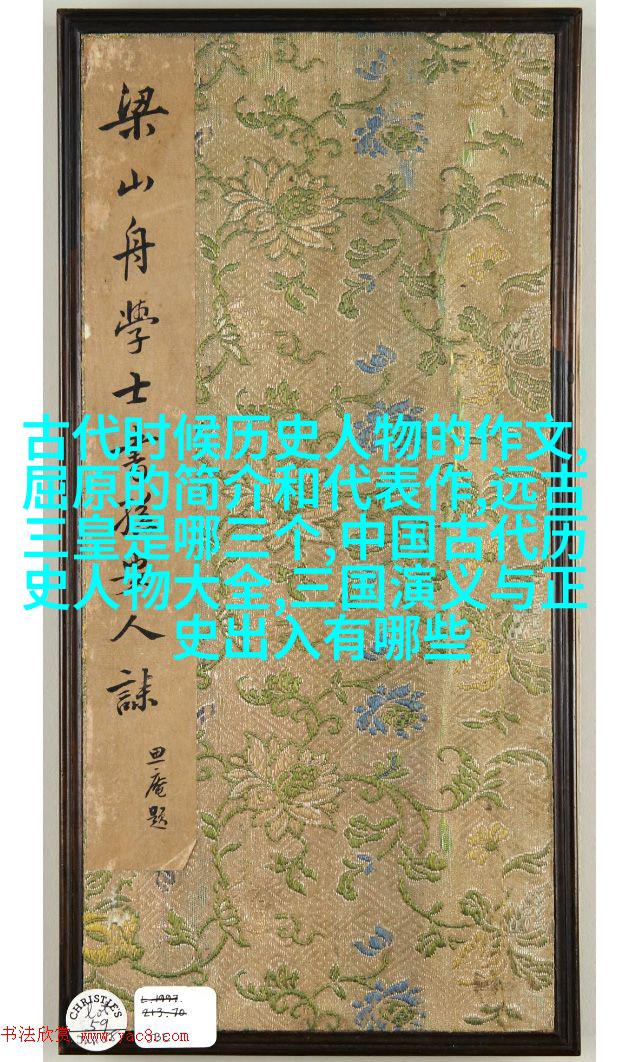 梁山舟學士書孫安人誄
庵題
古代时候历史人物的作文,
屈原的简介和代表作,远古
三皇是哪三个,中国古代历
史人物大全,三国演义与正
史出入有哪些
CHRISTIE'S
Lot
59
L.1997.
213.70
书法欣赏 www.yac8.com